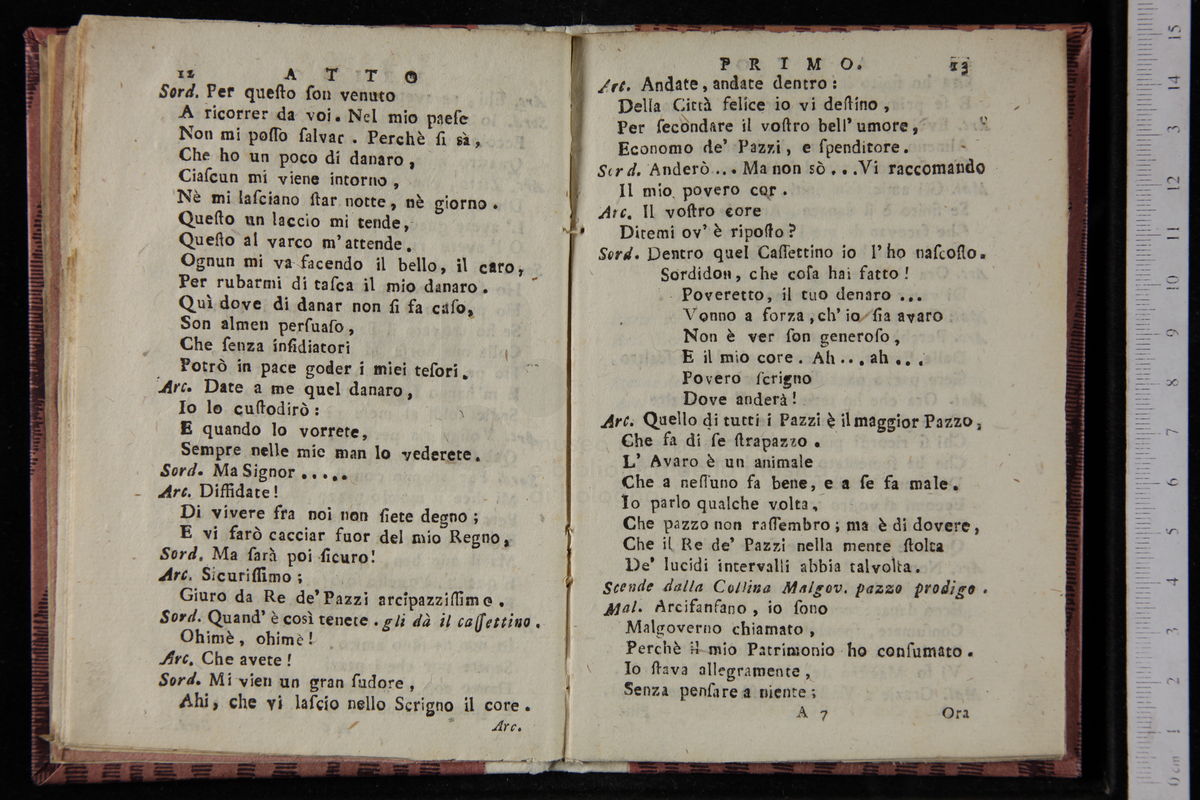 12 ATTO
Sord. Per queſto ſon venuto
A ricorrer da voi. Nel mio paeſe
Non mi poſſo ſalvar. Perchè ſi sà,
Che ho un poco di danaro,
Ciaſcun mi viene intorno,
Nè mi laſciano ſtar notte, nè giorno.
Queſto un laccio mi tende,
Queſto al varco m'attende.
Ognun mi va facendo il bello, il caro,
Per rubarmi di taſca il mio danaro.
Quì dove di danar non ſi fa caſo,
Son almen perſuaſo,
Che ſenza inſidiatori
Potrò in pace goder i miei teſori.
Arc. Date a me quel danaro,
Io lo cuſtodirò:
E quando lo vorrete,
Sempre nelle mie man lo vederete.
Sord. Ma Signor.....
Arc. Diffidate!
Di vivere fra noi non ſiete degno;
E vi farò cacciar fuor del mio Regno,
Sord. Ma ſarà poi ſicuro!
Arc. Sicuriſſimo;
Giuro da Re de' Pazzi arcipazziſſimo.
Sord. Quand' è così tenete. gli dà il caſſettino.
Ohimè, ohimè!
Arc. Che avete!
Sord. Mi vien un gran ſudore,
Ahi, che vi laſcio nello Scrigno il core.
Arc.
PRIMO. 13
Arc. Andate, andate dentro:
Della Città felice io vi deſtino,
Per ſecondare il voſtro bell' umore,
Economo de' Pazzi, e ſpenditore.
Sord. Anderò... Ma non sò...Vi raccomando
Il mio povero cor.
Arc. Il voſtro core
Ditemi ov' è ripoſto?
Sord. Dentro quel Caſſettino io l' ho naſcoſto.
Sordidon, che coſa hai fatto!
Poveretto, il tuo denaro...
Vonno a forza, ch' io ſia avaro
Non è ver ſon generoſo,
E il mio core. Ah... ah...
Povero ſcrigno
Dove anderà!
Arc. Quello di tutti i Pazzi è il maggior Pazzo,
Che fa di ſe ſtrapazzo.
L' Avaro è un animale
Che a neſſuno fa bene, e a ſe fa male.
Io parlo qualche volta,
Che pazzo non raſſembro; ma è di dovere,
Che il Re de' Pazzi nella mente ſtolta
De' lucidi intervalli abbia talvolta.
Scende dalla Collina Malgov. pazzo prodigo.
Mal. Arcifanfano, io ſono
Malgoverno chiamato,
Perchè il mio Patrimonio ho conſumato.
Io ſtava allegramente,
Senza penſare a niente;
A 7 Ora
15
14
13
12
11
10
9
8
7
6
5
4
3
2
1
0 cm